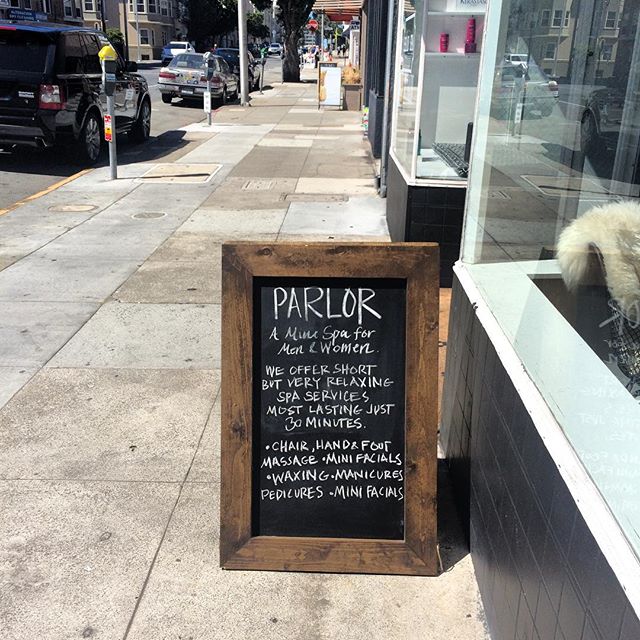 KÉRASTASE
PARLOR
A Mini Spa for
Men & Women.
WE OFFER SHORT
BUT VERY RELAXING
SPA SERVICES
MOST LASTING JUST
30 MINUTES.
• CHAIR, HAND & FOOT
MASSAGE • MINI FACIALS
• WAXING • MANICURES
PEDICURES • MINI FACIALS